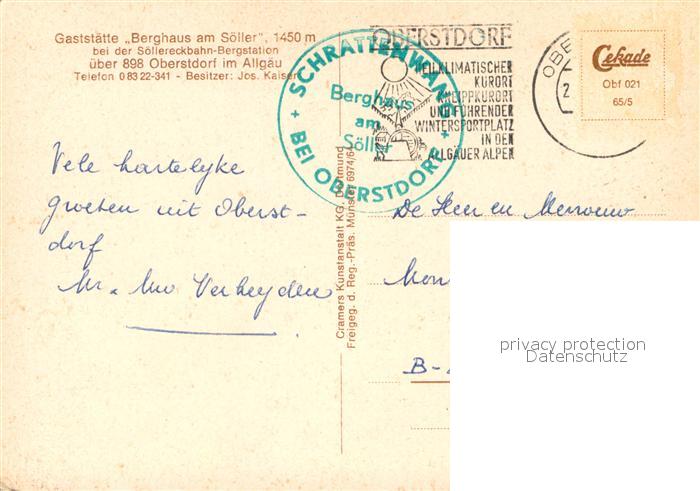 Gaststätte „Berghaus am Söller", 1450 m
bei der Söllereckbahn-Bergstation
über 898 Oberstdorf im Allgäu
Telefon 0 83 22-341 - Besitzer: Jos. Kaiser
SCHRATTENWANG
+ BEI OBERSTDORF +
Berghaus
am
Söller
OBERSTDORF
HEILKLIMATISCHER
KURORT
KNEIPPKURORT
UND FÜHRENDER
WINTERSPORTPLATZ
IN DEN
ALLGÄUER ALPEN
OBE
2
Cekade
Obf 021
65/5
Vele hartelyke
groeten uit Oberst-
dorf
Mr. & Mw Verheyden
Cramers Kunstanstalt KG. Dortmund
Freigeg. d. Reg.-Präs. Münster 6974/64
De Heer en Mevrouw
B-
privacy protection
Datenschutz